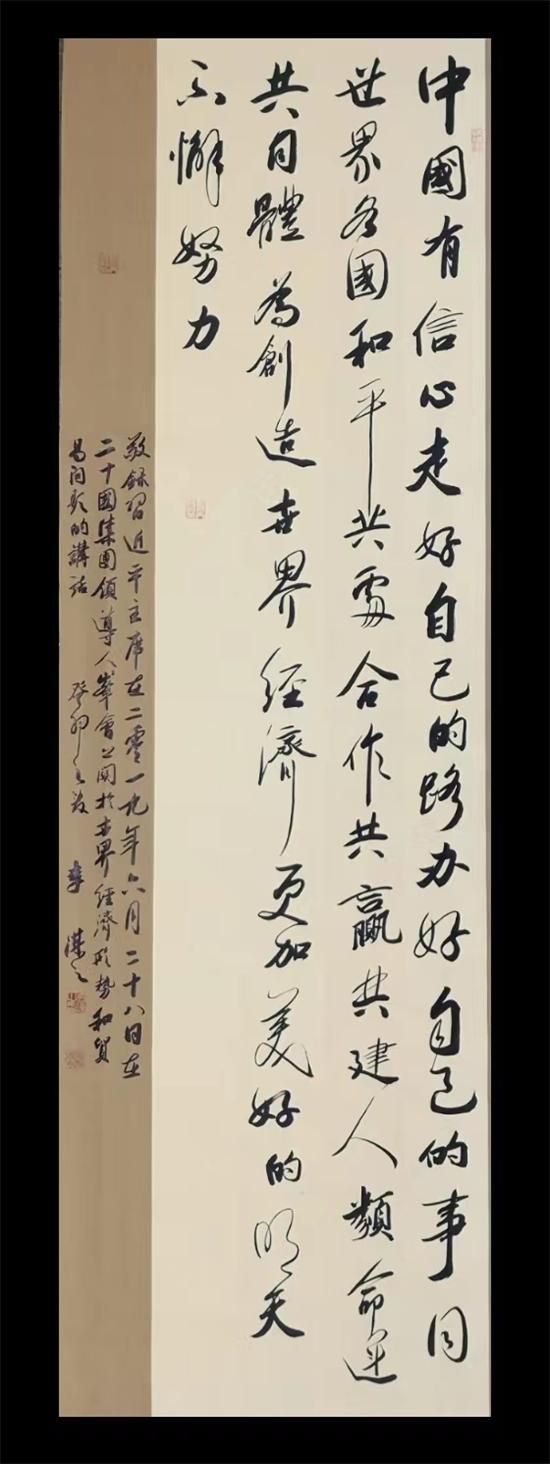 中國有信心走好自己的路办好自己的事同
世界各國和平共處合作共贏共建人類命运
共同體為創造世界經濟更加美好的明天
不懈努力
敬録習近平主席在二零一九年六月二十八日在
二十國集團領導人峯會上関於世界經濟形势和贸
易问题的講話
癸卯之友 李